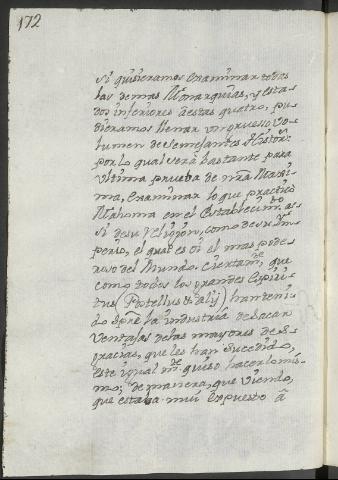 172
Si quisieramos examinar todas
las demas Monarquias, y esta-
dos inferiores à estas quatro, pu-
dieramos llenar un grueso Vo-
lumen de semejantes Histor.s
por lo qual será bastante para
ultima prueba de nrã Maxi-
ma, examinar lo que practicó
Mahoma en el establecim.to
si de su religion, como de su Im-
perio, el qual es oi el mas pode-
roso del Mundo. Ciertam.te que
como todos los grandes Espiri-
tus (Postellus & alij) han teni-
do spre la industria de sacar
ventajas de las mayores des-
gracias, que les han sucedido,
este igual m.te quiso hacer lo mis-
mo; de manera, que viendo,
que estaba mui expuesto à